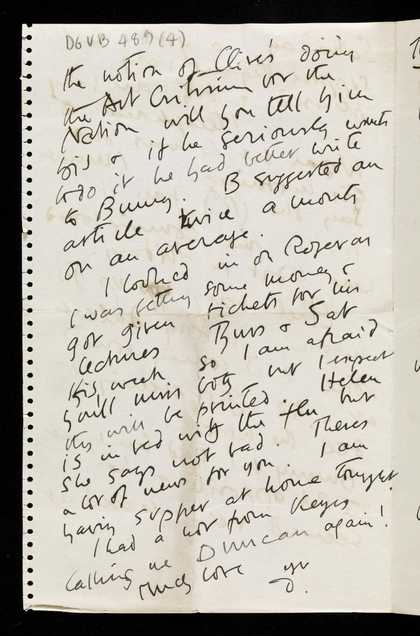 DGVB 489 (4)
the notion of Clive's doing
the Art Criticism for the
Nation will you tell him
this & if he seriously wants
to do it he had better write
to Bunny. B suggested an
article twice a month
on an average.
I looked in on Roger as
I was getting some money &
got given tickets for his
lectures Thurs & Sat
this week so I am afraid
you'll miss both but I expect
they will be printed. Helen
is in bed with the flu but
she says not bad. Theres
a lot of news for you. I am
having supper at home tonight
I had a not from Keynes
calling me Duncan again!
Much love yr